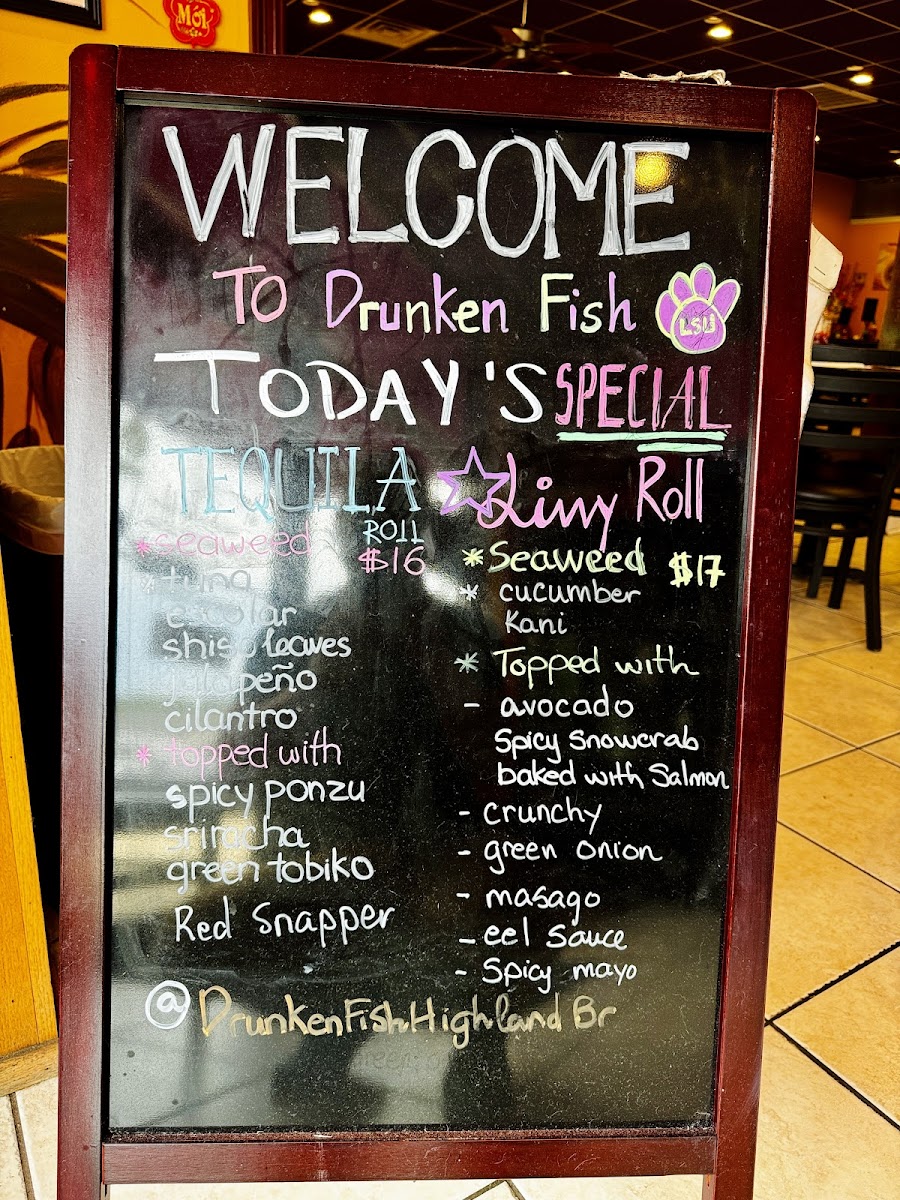 Mói
WELCOME
To Drunken Fish
LSU
TODAY'S SPECIAL
TEQUILA
ROLL
$16
* seaweed
* tuna
escolar
shiso leaves
jalapeño
cilantro
* topped with
spicy ponzu
sriracha
green tobiko
Red Snapper
Livvy Roll
* Seaweed $17
* cucumber
Kani
* Topped with
- avocado
Spicy Snowcrab
baked with Salmon
- crunchy
- green onion
- masago
- eel sauce
- Spicy mayo
@DrunkenFishHighland Br